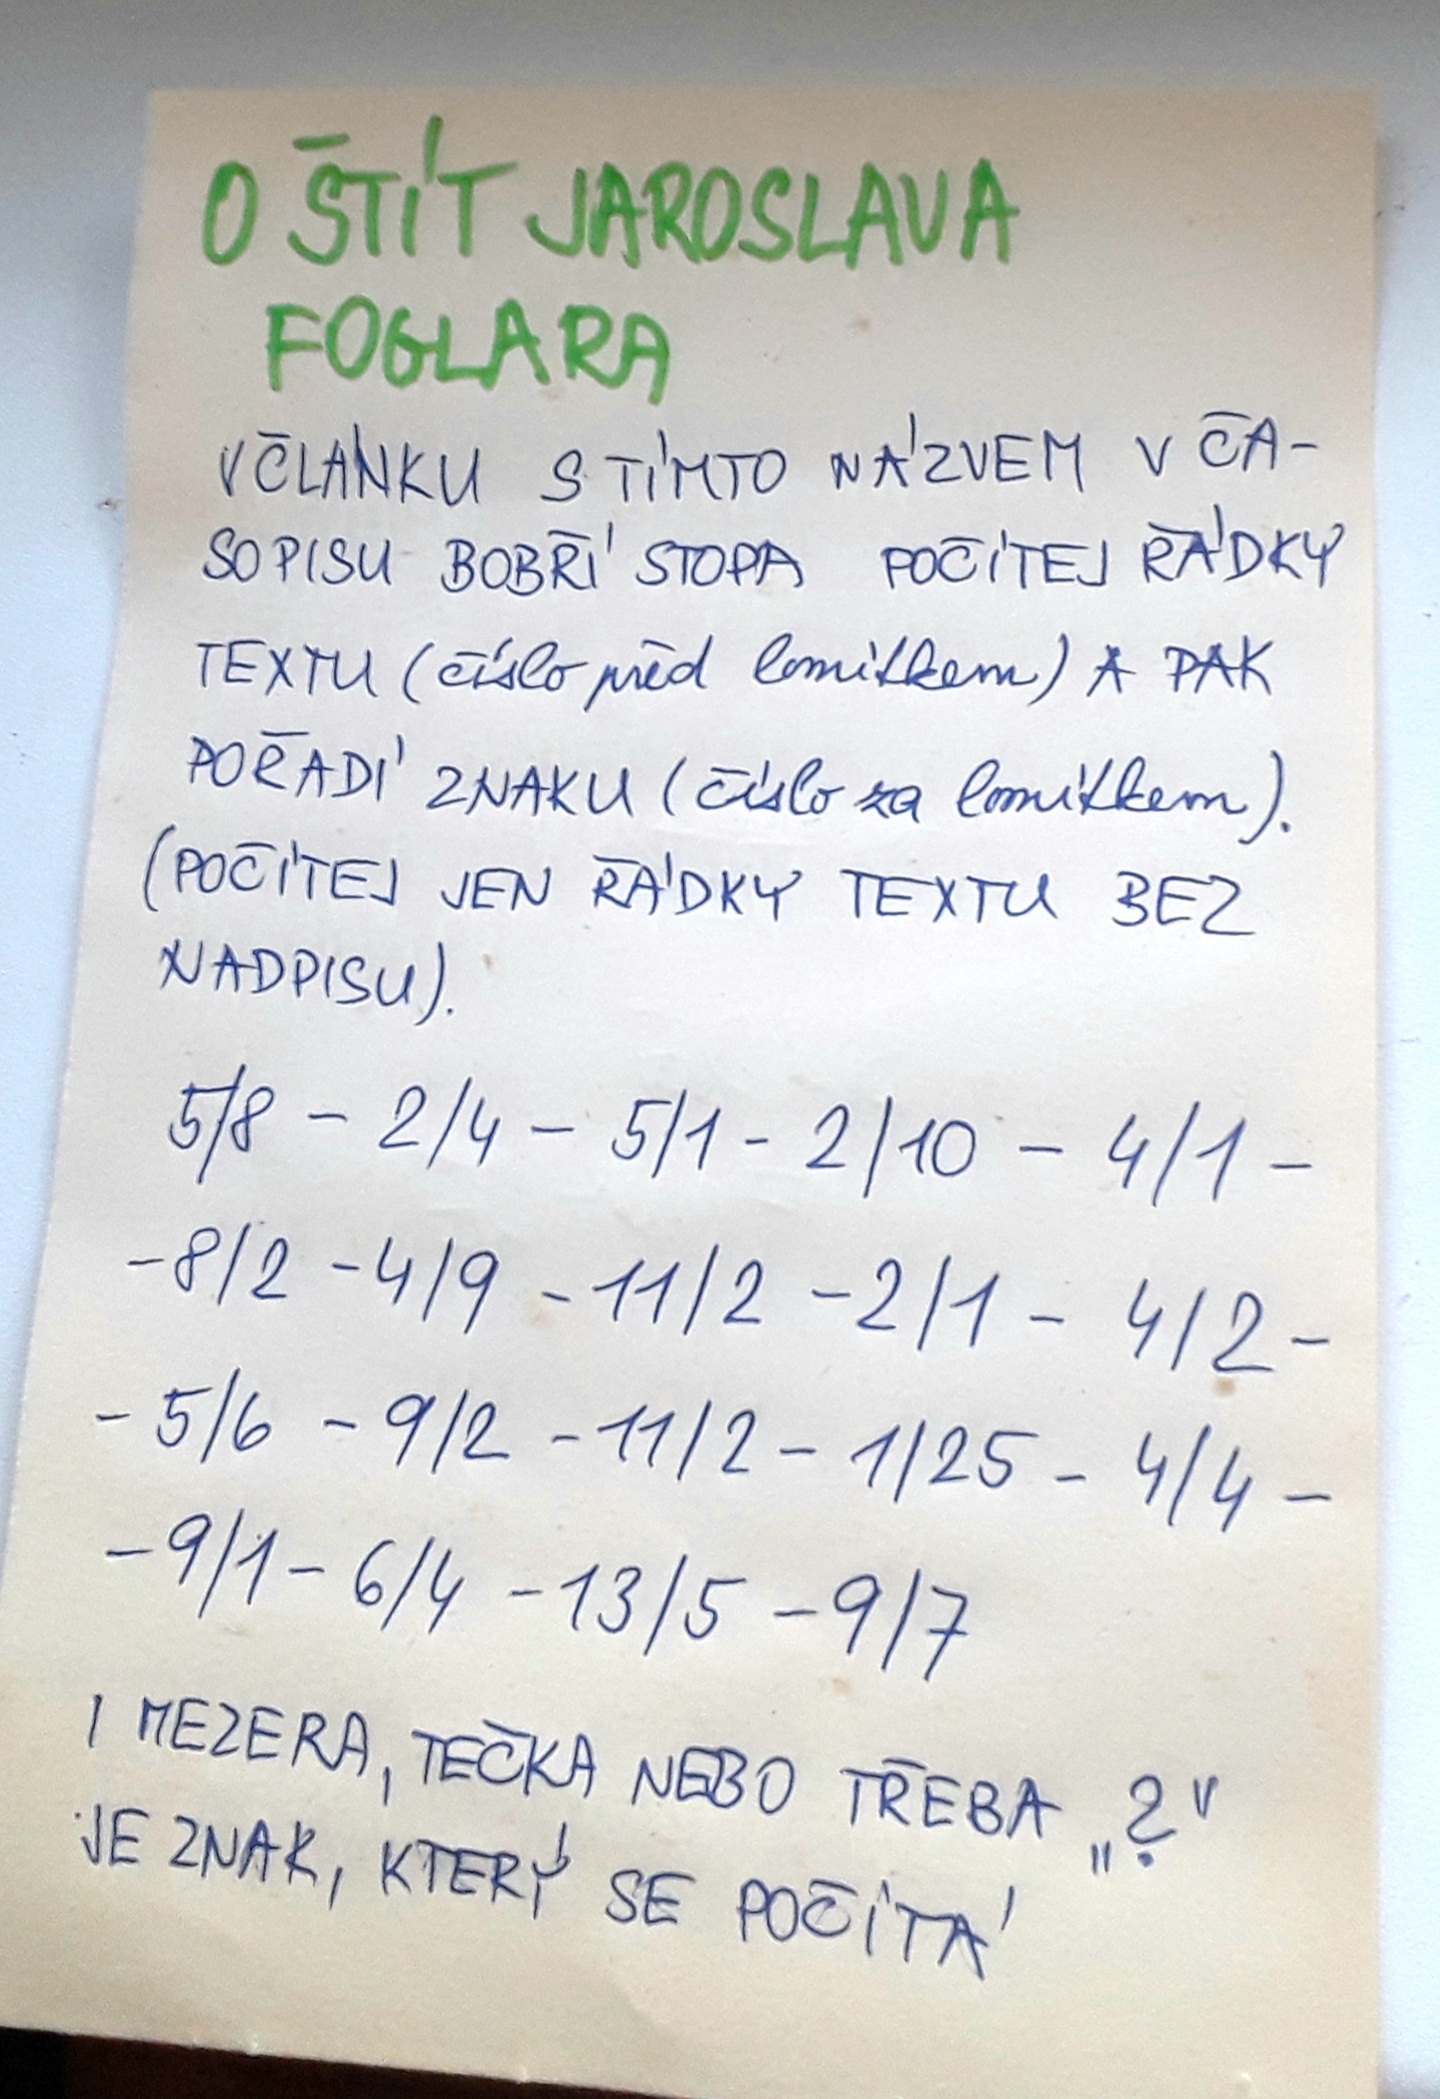 O ŠTÍT JAROSLAVA
FOGLARA
V ČLÁNKU S TÍMTO NÁZVEM V ČA-
SOPISU BOBŘÍ STOPA POČÍTEJ ŘÁDKY
TEXTU (číslo před lomítkem) A PAK
POŘADÍ ZNAKU (číslo za lomítkem).
(POČÍTEJ JEN ŘÁDKY TEXTU BEZ
NADPISU).
5/8 - 2/4 - 5/1 - 2/10 - 4/1 -
-8/2 -4/9 -11/2 -2/1 - 4/2 -
- 5/6 - 9/2 -11/2 - 1/25 - 4/4 -
-9/1 - 6/4 -13/5 -9/7
I MEZERA, TEČKA NEBO TŘEBA „?"
JE ZNAK, KTERÝ SE POČÍTÁ